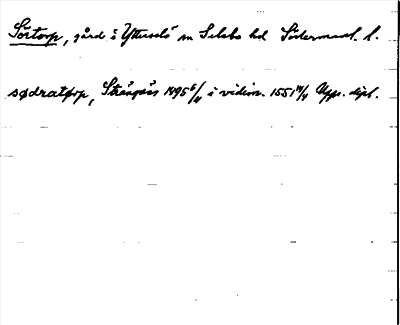 Sörtorp, gård i Ytterselö sn Selebo hd Södermanl. l.
sødratorp, Strängnäs 1495 5/11 i vidim. 1551 14/9 Upps. dipl.